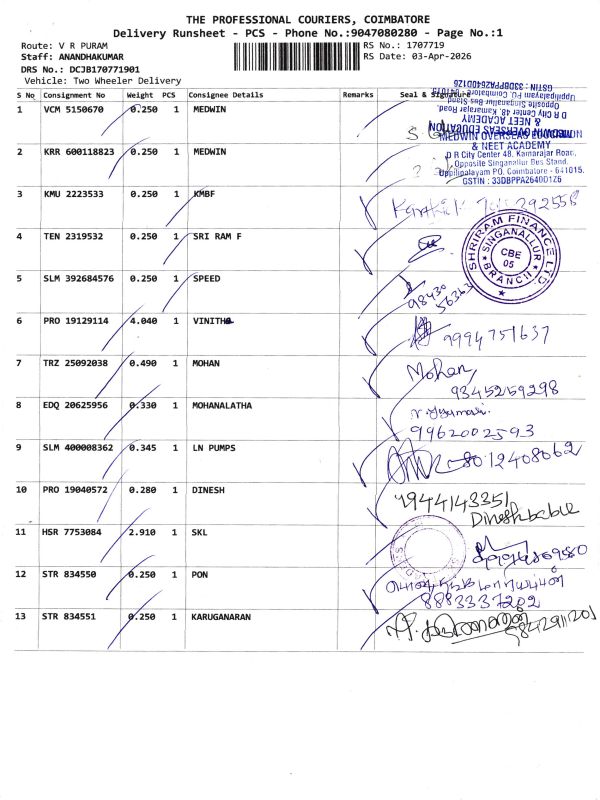 THE PROFESSIONAL COURIERS, COIMBATORE
Delivery Runsheet - PCS - Phone No.:9047080280 - Page No.:1
Route: V R PURAM
RS No.: 1707719
Staff: ANANDHAKUMAR
RS Date: 03-Apr-2026
DRS No.: DCJB170771901
Vehicle: Two Wheeler Delivery
S No Consignment No Weight PCS Consignee Details Remarks Seal & Signature
1 VCM 5150670 0.250 1 MEDWIN
MEDWIN OVERSEAS EDUCATION
& NEET ACADEMY
D R City Center 48, Kamarajar Road,
Opposite Singanallur Bus Stand,
Uppilipalayam PO, Coimbatore - 641015.
GSTIN : 33DBPPA2640D1Z6
2 KRR 600118823 0.250 1 MEDWIN
MEDWIN OVERSEAS EDUCATION
& NEET ACADEMY
D R City Center 48, Kamarajar Road,
Opposite Singanallur Bus Stand,
Uppilipalayam PO, Coimbatore - 641015.
GSTIN : 33DBPPA2640D1Z6
3 KMU 2223533 0.250 1 KMBF
4 TEN 2319532 0.250 1 SRI RAM F
SHRIRAM FINANCE LTD.
SINGANALLUR
CBE
05
BRANCH
5 SLM 392684576 0.250 1 SPEED
98430
56363
6 PRO 19129114 4.040 1 VINITHA
9994751637
7 TRZ 25092038 0.490 1 MOHAN
Mohan
9345259298
8 EDQ 20625956 0.330 1 MOHANALATHA
9962002593
9 SLM 400008362 0.345 1 LN PUMPS
8012408062
10 PRO 19040572 0.280 1 DINESH
7944143351
Dineshbabu
11 HSR 7753084 2.910 1 SKL
12 STR 834550 0.250 1 PON
8883337202
13 STR 834551 0.250 1 KARUGANARAN
9842911201